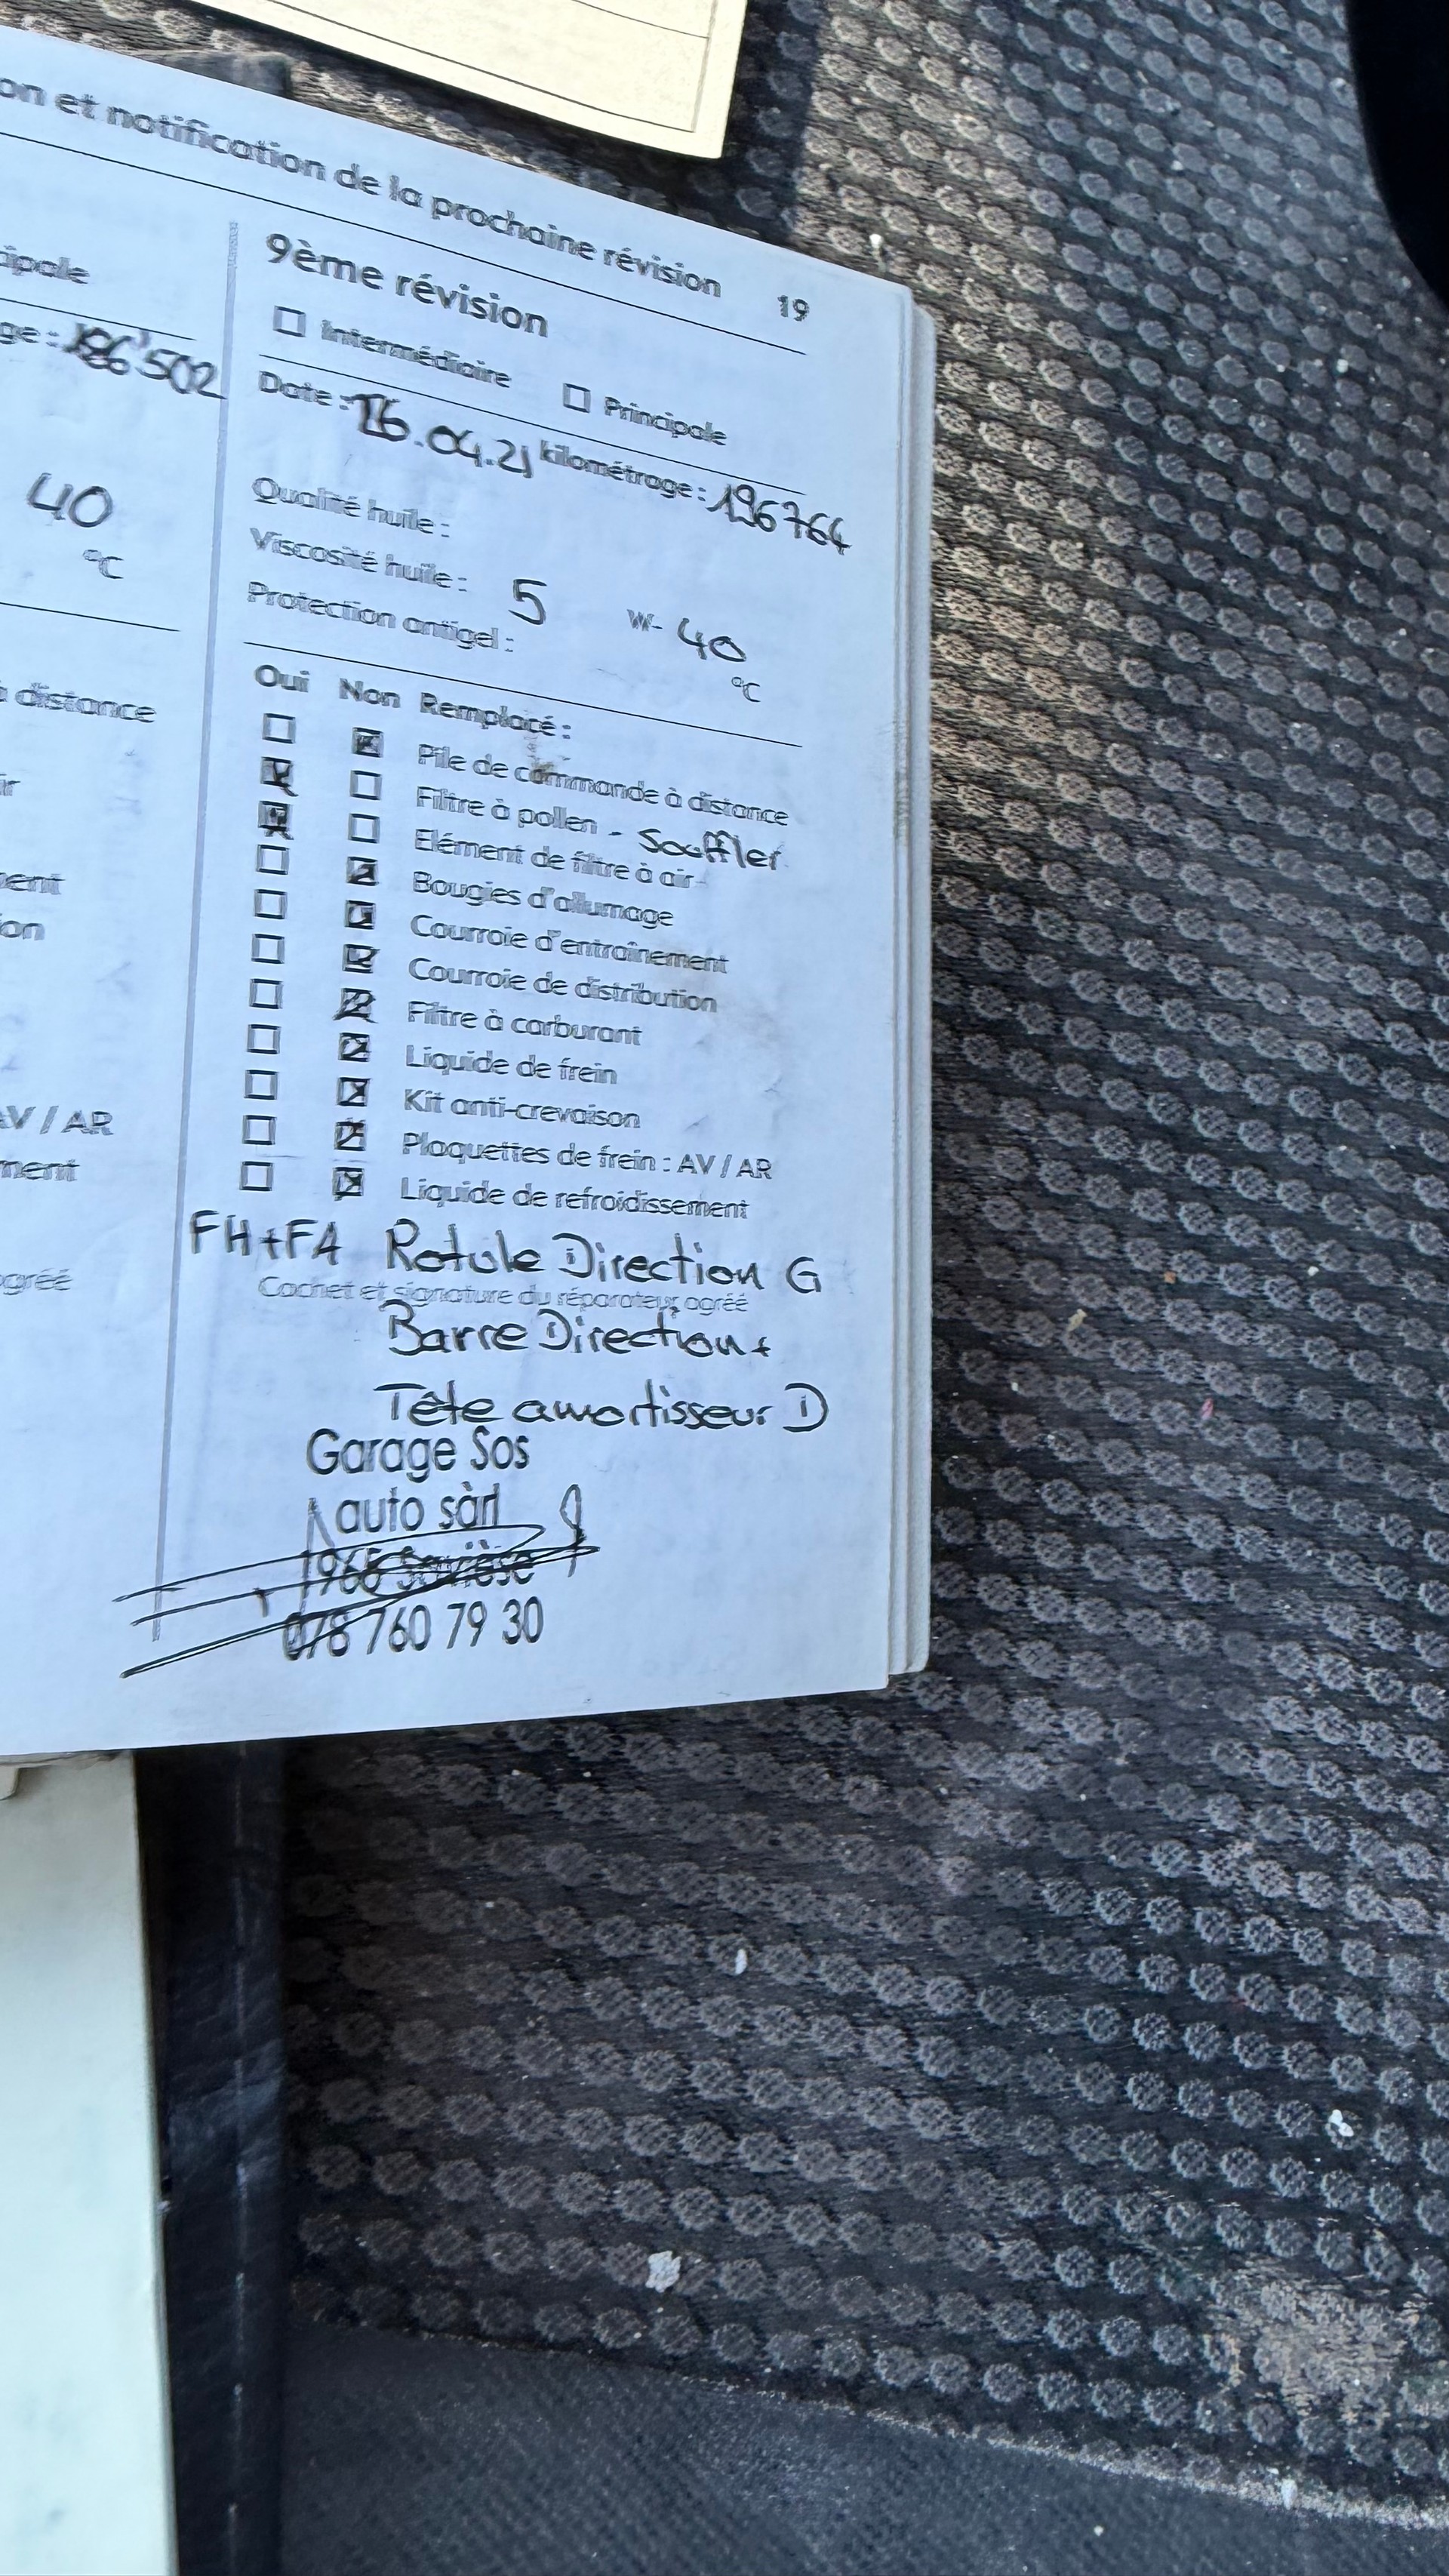 on et notification de la prochaine révision 19
cipale
ge : 186'502
40
°C
à distance
ir
ment
ion
AV / AR
ment
agréé
9ème révision
☐ Intermédiaire ☐ Principale
Date : 16.04.21 kilométrage : 196764
Qualité huile :
Viscosité huile : 5 W- 40
Protection antigel : °C
Oui Non Remplacé :
☐ ☒ Pile de commande à distance
☒ ☐ Filtre à pollen - Souffler
☒ ☐ Elément de filtre à air
☐ ☒ Bougies d'allumage
☐ ☒ Courroie d'entraînement
☐ ☒ Courroie de distribution
☐ ☒ Filtre à carburant
☐ ☒ Liquide de frein
☐ ☒ Kit anti-crevaison
☐ ☒ Plaquettes de frein : AV / AR
☐ ☒ Liquide de refroidissement
FH+FA Rotule Direction G
Cachet et signature du réparateur agréé
Barre Direction +
Tête amortisseur D
Garage Sos
auto sàrl
1965 Savièse
078 760 79 30